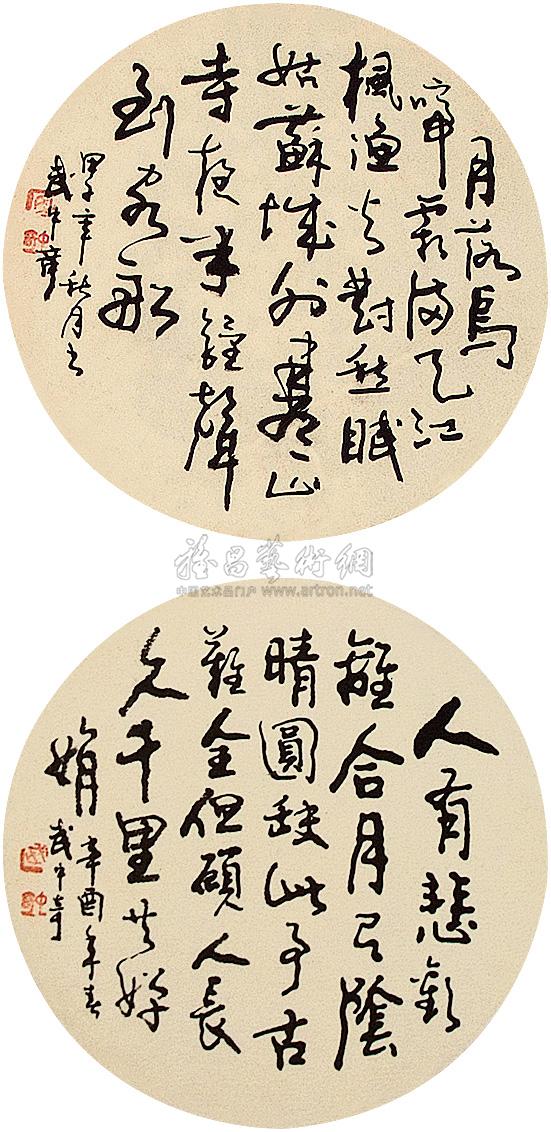 月落烏
啼霜滿天江
楓漁火對愁眠
姑蘇城外寒山
寺夜半鐘聲
到客船
甲子年秋月书
武中奇
雅昌藝術網
中国艺术品门户 www.artron.net
人有悲歡
離合月有陰
晴圓缺此事古
難全但願人長
久千里共嬋
娟 辛酉年春
武中奇